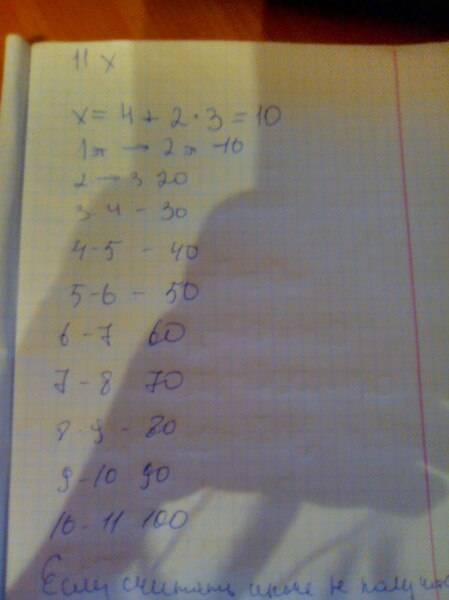 11 х
х = 4 + 2 · 3 = 10
1п → 2п - 10
2 → 3 20
3 4 - 30
4 - 5 - 40
5 - 6 - 50
6 - 7 60
7 - 8 70
8 - 9 - 80
9 - 10 90
10 - 11 100
Если считать иначе не получ